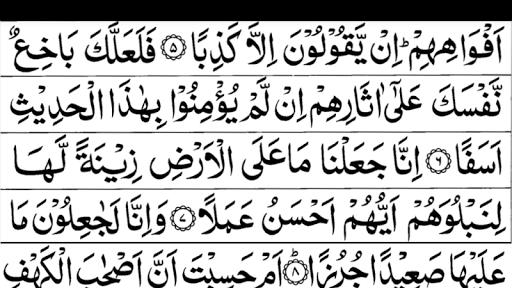 اَفْوَاهِهِمْ ؕ اِنْ يَّقُوْلُوْنَ اِلَّا كَذِبًا ۝۵ فَلَعَلَّكَ بَاخِعٌ
نَّفْسَكَ عَلٰۤى اٰثَارِهِمْ اِنْ لَّمْ يُؤْمِنُوْا بِهٰذَا الْحَدِيْثِ
اَسَفًا ۝۶ اِنَّا جَعَلْنَا مَا عَلَى الْاَرْضِ زِيْنَةً لَّهَا
لِنَبْلُوَهُمْ اَيُّهُمْ اَحْسَنُ عَمَلًا ۝۷ وَاِنَّا لَجٰعِلُوْنَ مَا
عَلَيْهَا صَعِيْدًا جُرُزًا ؕ ۝۸ اَمْ حَسِبْتَ اَنَّ اَصْحٰبَ الْكَهْفِ